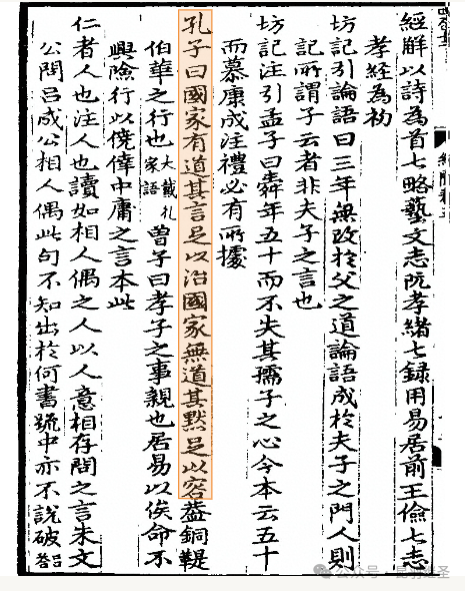 經解以詩為首七略藝文志阮孝緒七錄用易居前王儉七志
孝經為初
坊記引論語曰三年無改於父之道論語成於夫子之門人則
記所謂子云者非夫子之言也
坊記注引孟子曰舜年五十而不失其孺子之心今本云五十
而慕康成注禮必有所據
孔子曰國家有道其言足以治國家無道其默足以容葢銅鞮
伯華之行也大戴礼家語曾子曰孝子之事親也居易以俟命不
興險行以僥倖中庸之言本此
仁者人也注人也讀如相人偶之人以人意相存問之言朱文
公問呂成公相人偶此句不知出於何書疏中亦不說破呂答
公众号